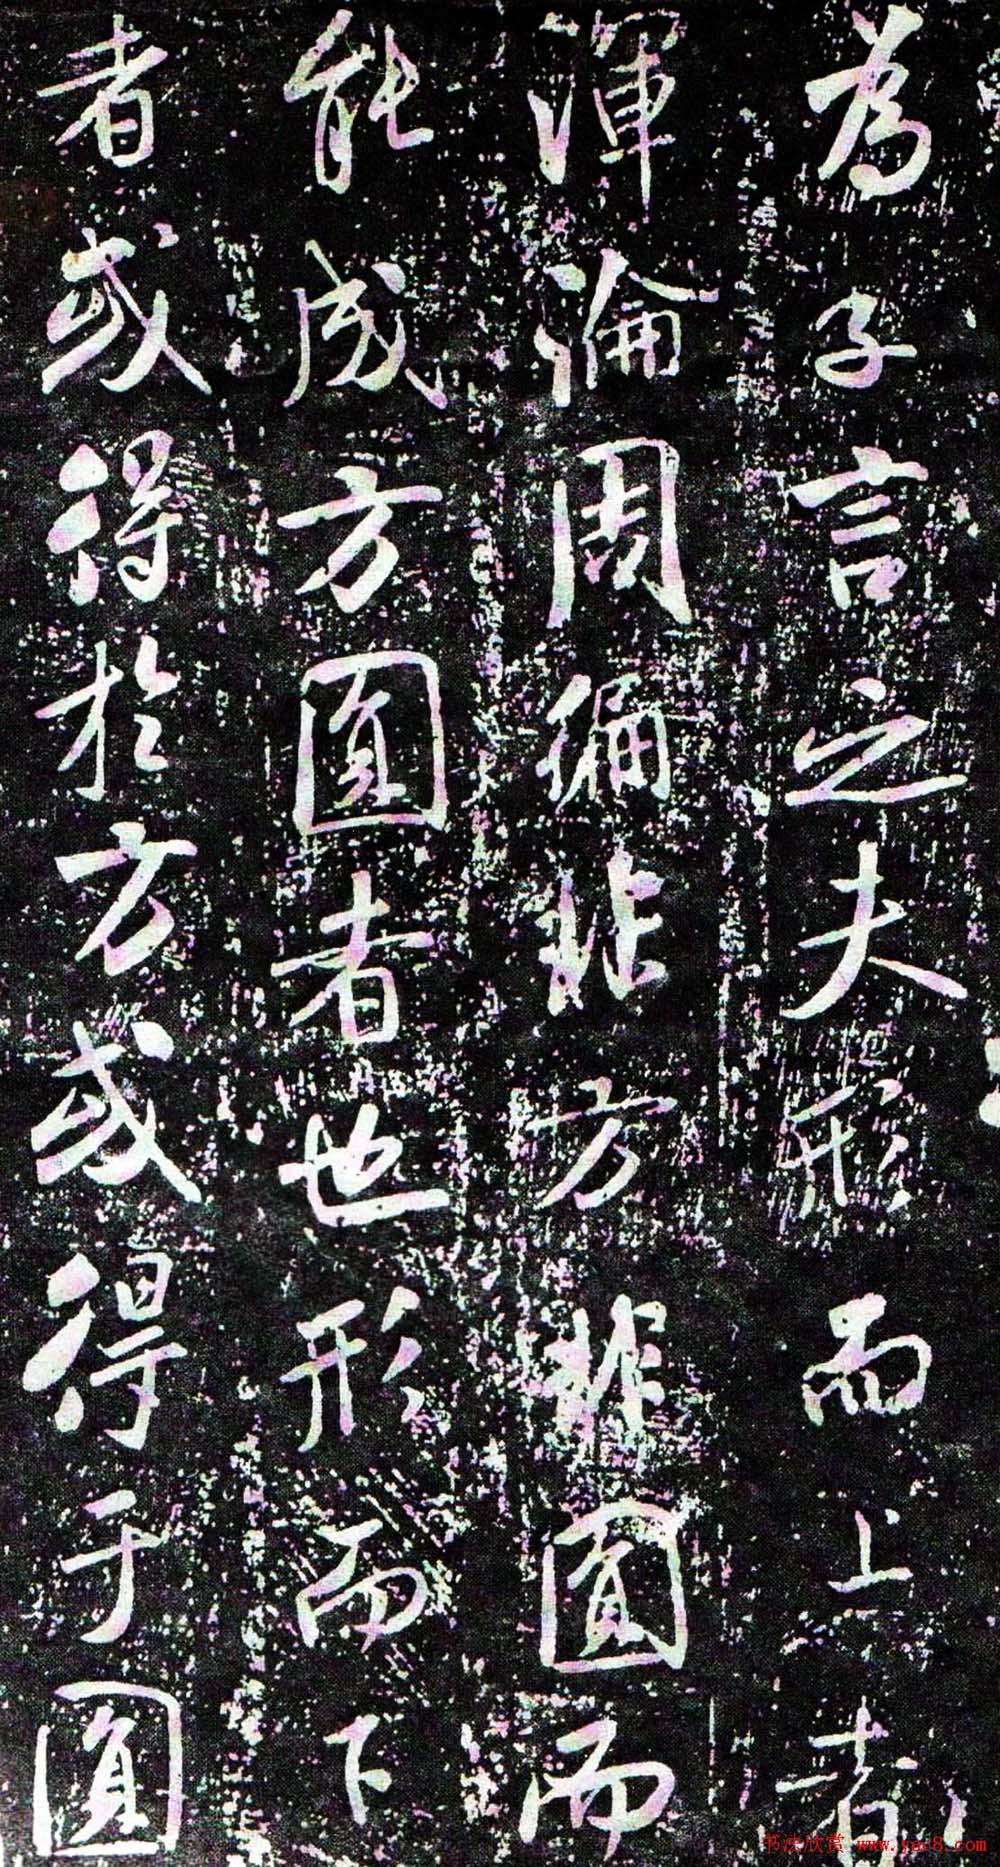 為子言之夫形而上者
渾淪周徧非方非圓而
能成方圓者也形而下
者或得於方或得于圓
书法欣赏 www.yac8.com